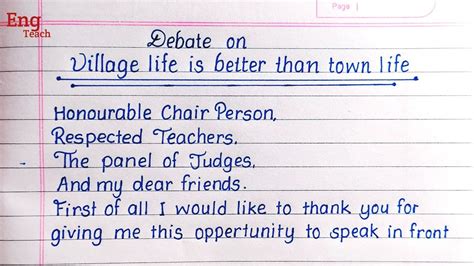 Eng
Teach
Page
Debate on
Village life is better than town life
Honourable Chair Person,
Respected Teachers,
The panel of Judges,
And my dear friends.
First of all I would like to thank you for
giving me this opportunity to speak in front